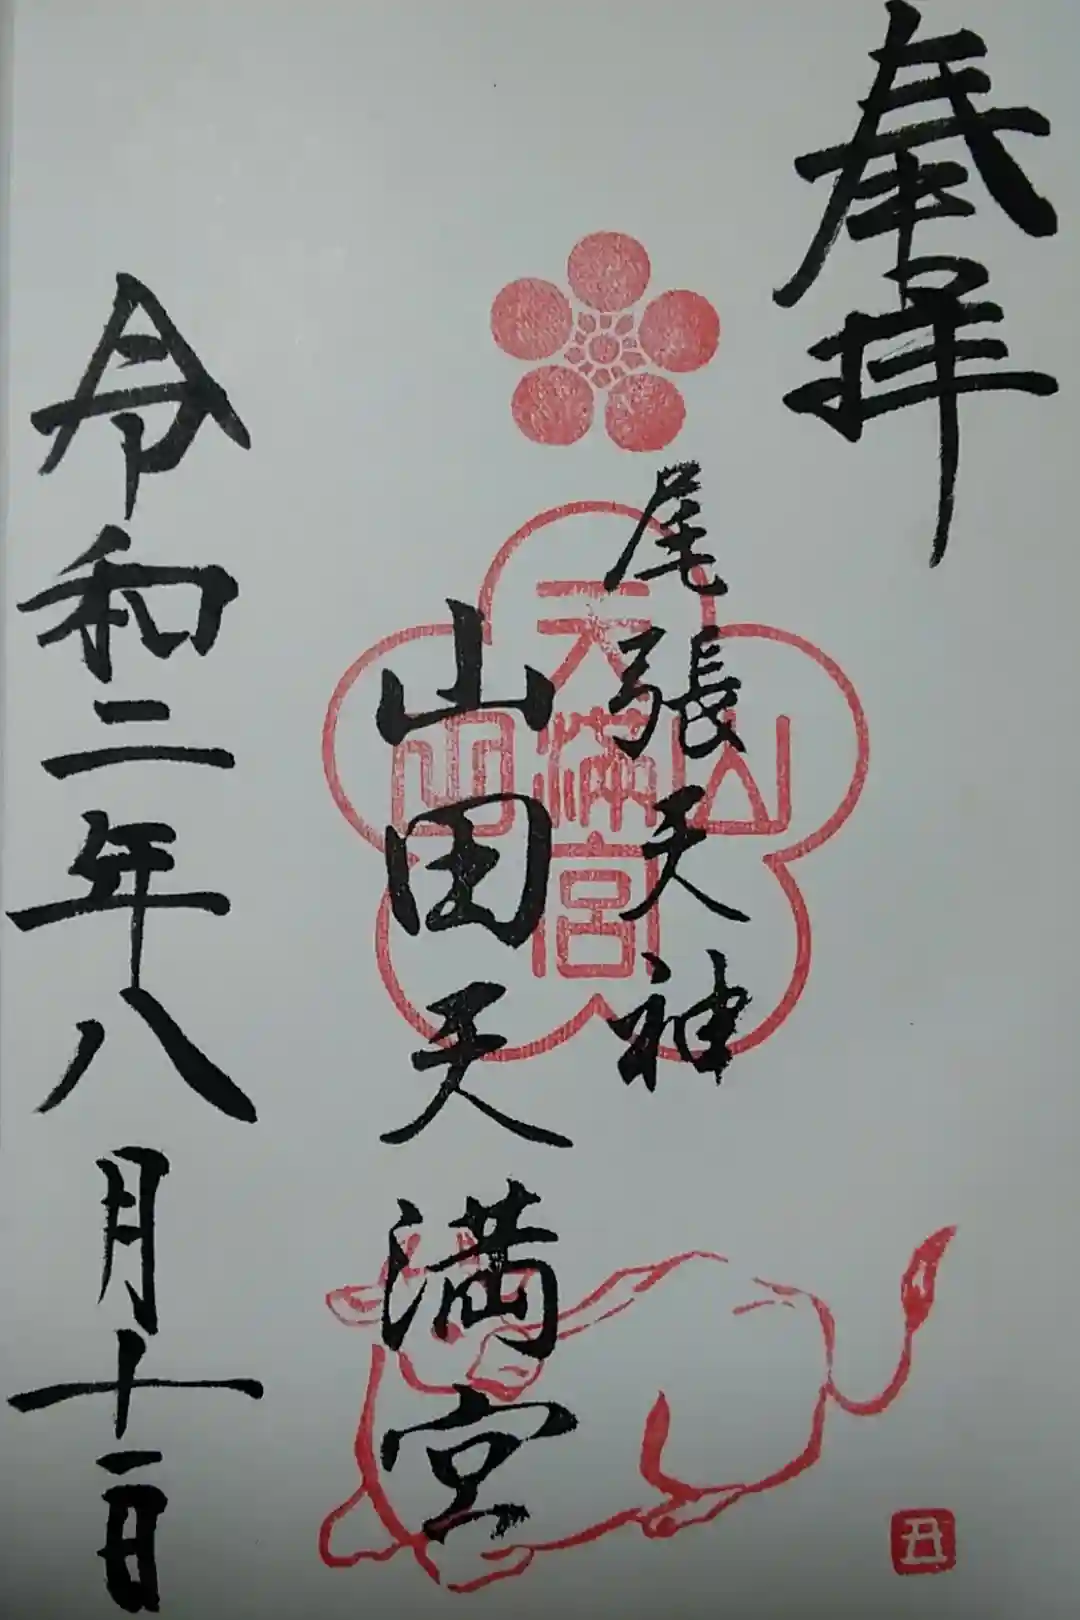 奉拝
尾張天神
山田天満宮
令和二年八月十一日
山田天満宮
丑